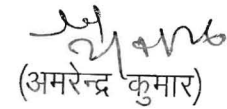 (अमरेन्द्र कुमार)